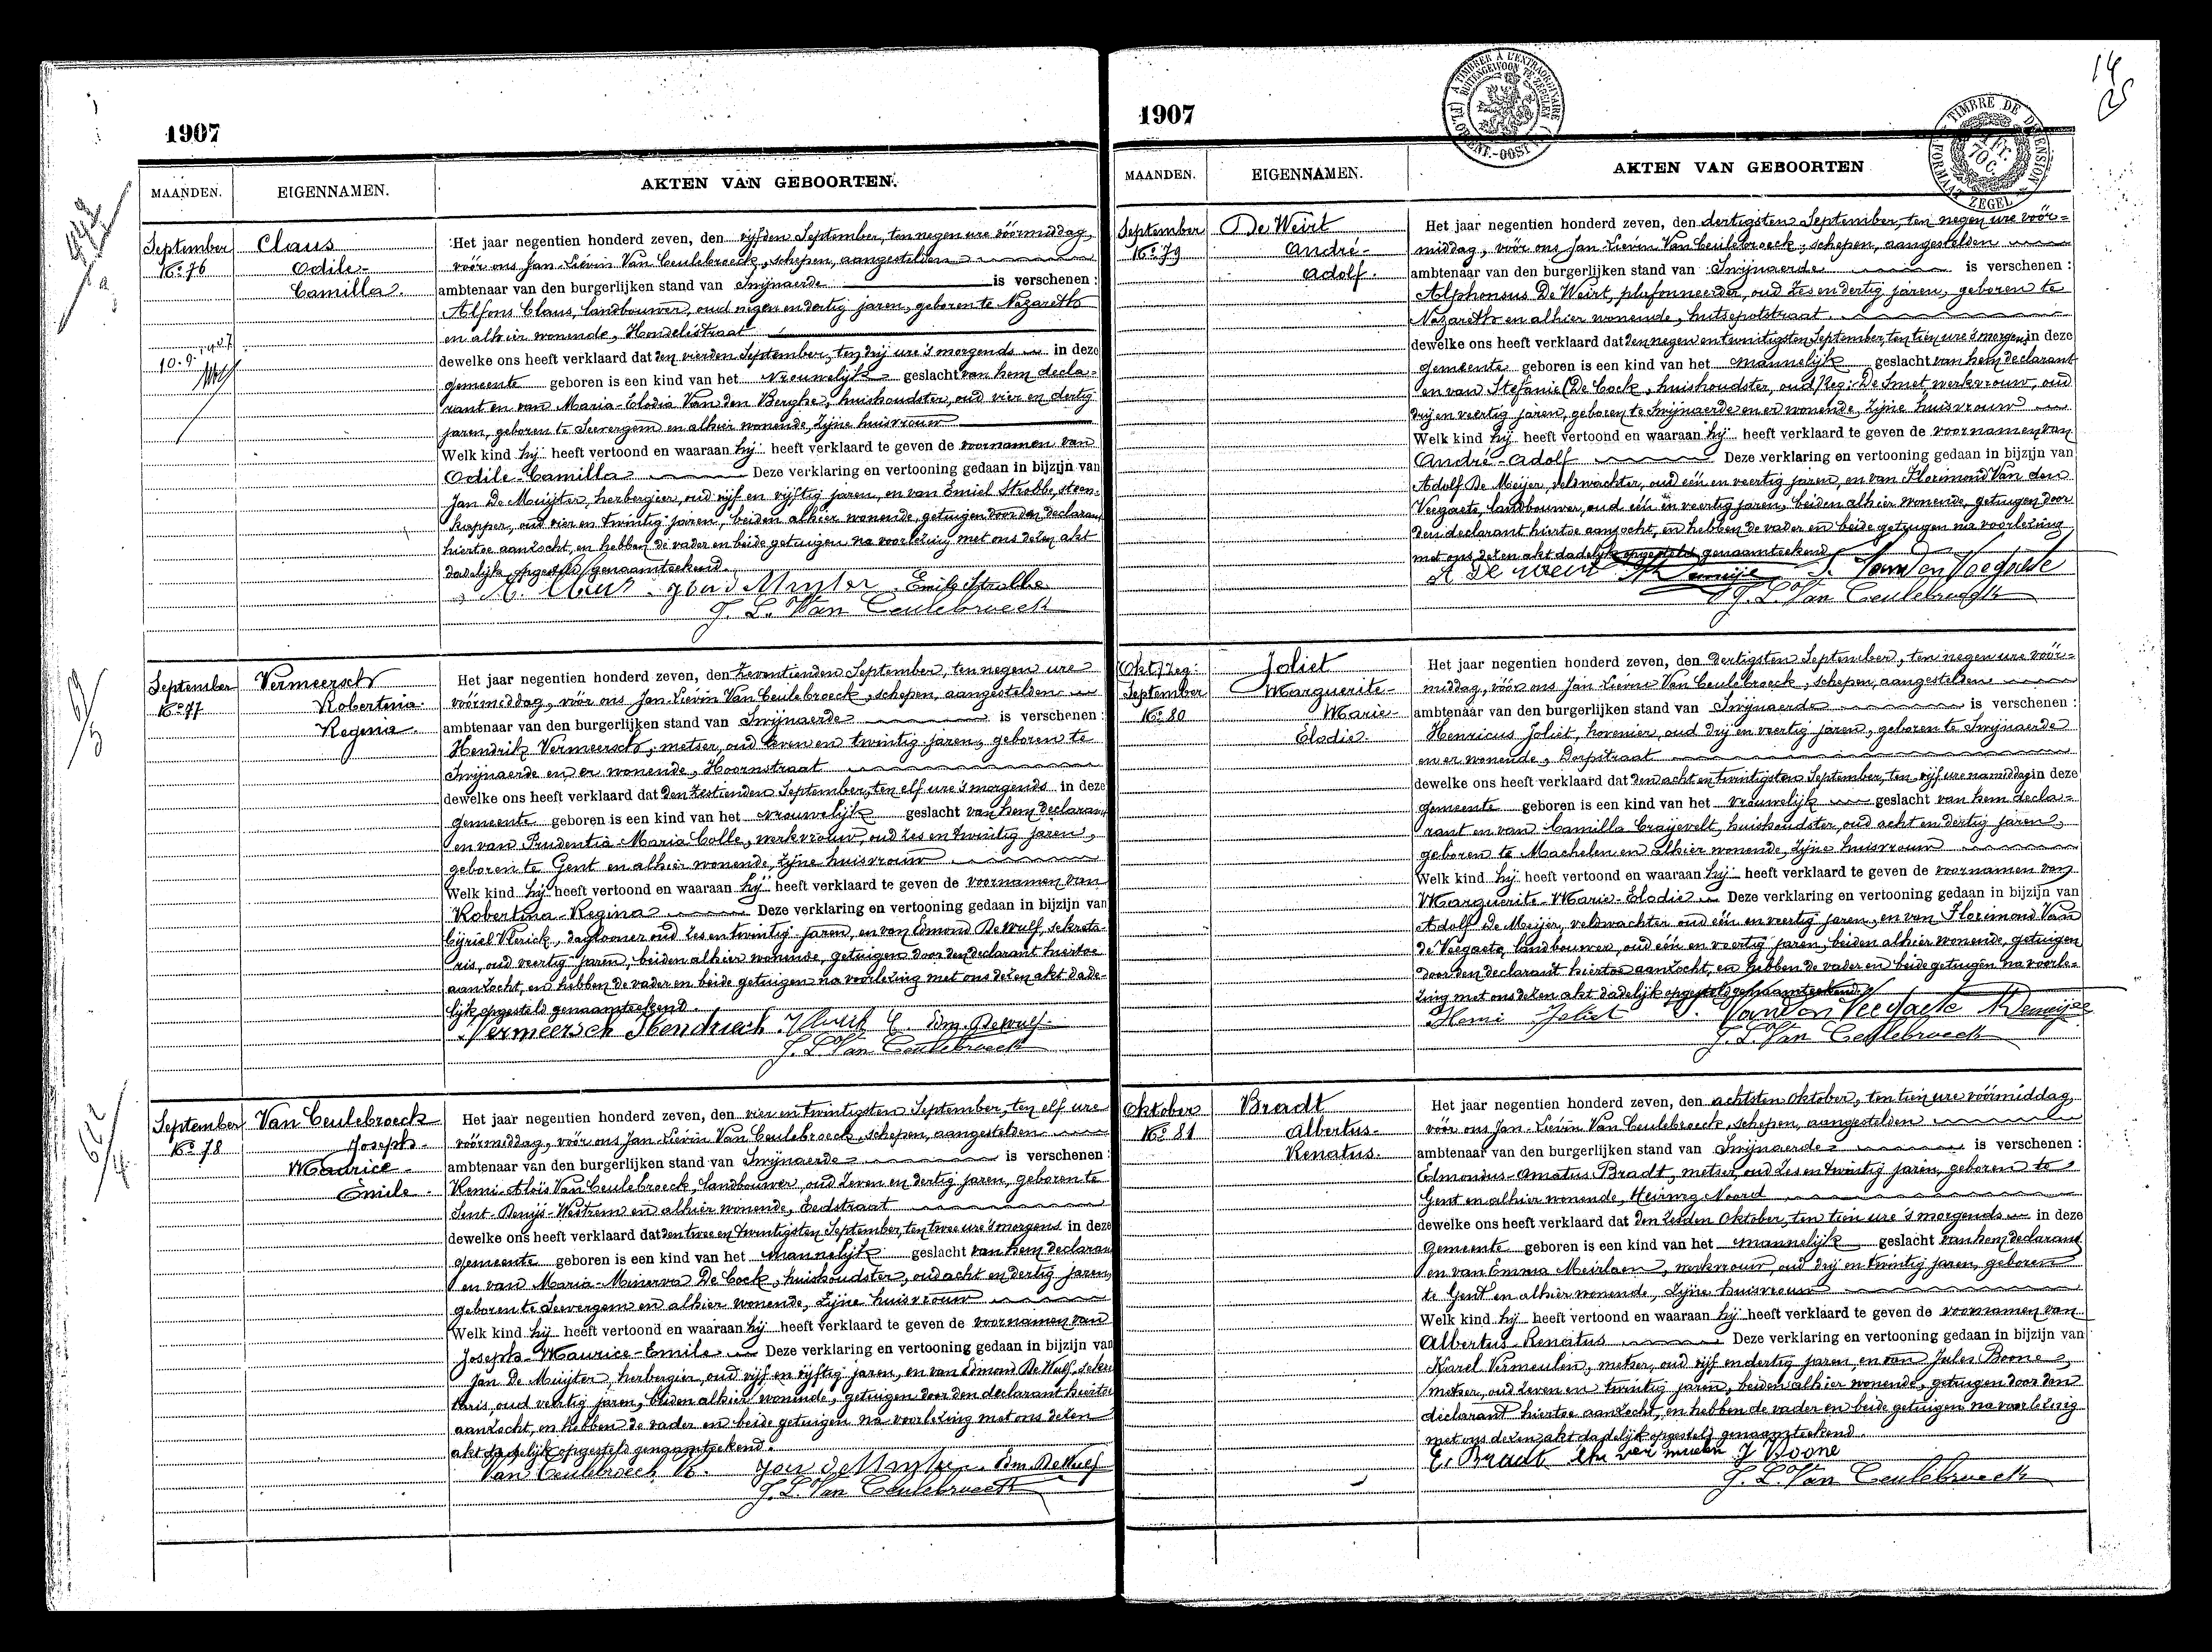 1907
MAANDEN. EIGENNAMEN. AKTEN VAN GEBOORTEN.
September
No 76
Claus
Odile-
Camilla.
Het jaar negentien honderd zeven, den vijfden September, ten negen ure vóórmiddag,
vóór ons Jan Liévin Van Ceulebroeck, schepen, aangestelden
ambtenaar van den burgerlijken stand van Swijnaerde is verschenen :
Alfons Claus, landbouwer, oud negen en dertig jaren, geboren te Nazareth
en alhier wonende, Hondelestraat
dewelke ons heeft verklaard dat den vierden September, ten drij ure 's morgends in deze
gemeente geboren is een kind van het vrouwelijk geslacht van hem decla-
rant en van Maria-Elodia Van den Berghe, huishoudster, oud vier en dertig
jaren, geboren te Seevergem en alhier wonende, zijne huisvrouw
Welk kind hij heeft vertoond en waaraan hij heeft verklaard te geven de voornamen van
Odile-Camilla Deze verklaring en vertooning gedaan in bijzijn van
Jan De Muijter, herbergier, oud vijf en vijftig jaren, en van Emiel Strobbe, steen-
kapper, oud vier en twintig jaren, beiden alhier wonende, getuigen door den declarant
hiertoe aanzocht, en hebben de vader en beide getuigen na voorlezing met ons dezen akt
dadelijk opgesteld genaamteekend.
A. Claus Jan d Muyter Emile Strobbe
J. L. Van Ceulebroeck
September
No 77
Vermeersch
Robertina-
Regina.
Het jaar negentien honderd zeven, den zeventienden September, ten negen ure
vóórmiddag, vóór ons Jan-Liévin Van Ceulebroeck, schepen, aangestelden
ambtenaar van den burgerlijken stand van Swijnaerde is verschenen :
Hendrik Vermeersch, metser, oud zeven en twintig jaren, geboren te
Swijnaerde en er wonende, Hoornstraat
dewelke ons heeft verklaard dat den zestienden September, ten elf ure 's morgends in deze
gemeente geboren is een kind van het vrouwelijk geslacht van hem declarant
en van Prudentia-Maria Colle, werkvrouw, oud zes en twintig jaren,
geboren te Gent en alhier wonende, zijne huisvrouw
Welk kind hij heeft vertoond en waaraan hij heeft verklaard te geven de voornamen van
Robertina-Regina Deze verklaring en vertooning gedaan in bijzijn van
Cijriel Vlerick, daglooner oud zes en twintig jaren, en van Edmond De Wulf, sekreta-
ris, oud veertig jaren, beiden alhier wonende, getuigen door den declarant hiertoe
aanzocht, en hebben de vader en beide getuigen na voorlezing met ons dezen akt dade-
lijk opgesteld genaamteekend.
Vermeersch Hendriech Vlerick C. Edm. De Wulf
J. L. Van Ceulebroeck
September
No 78
Van Ceulebroeck
Joseph-
Maurice-
Emile.
Het jaar negentien honderd zeven, den vier en twintigsten September, ten elf ure
vóórmiddag, vóór ons Jan-Liévin Van Ceulebroeck, schepen, aangestelden
ambtenaar van den burgerlijken stand van Swijnaerde is verschenen :
Remi-Aloïs Van Ceulebroeck, landbouwer, oud zeven en dertig jaren, geboren te
Sint-Denijs-Westrem en alhier wonende, Eedstraat
dewelke ons heeft verklaard dat den twee en twintigsten September, ten twee ure 's morgens in deze
gemeente geboren is een kind van het mannelijk geslacht van hem declarant
en van Maria-Minerva De Cock, huishoudster, oud acht en dertig jaren,
geboren te Seevergem en alhier wonende, zijne huisvrouw
Welk kind hij heeft vertoond en waaraan hij heeft verklaard te geven de voornamen van
Joseph-Maurice-Emile. Deze verklaring en vertooning gedaan in bijzijn van
Jan De Muijter, herbergier, oud vijf en vijftig jaren, en van Edmond De Wulf, sekre-
taris oud veertig jaren, beiden alhier wonende, getuigen door den declarant hiertoe
aanzocht, en hebben de vader en beide getuigen na voorlezing met ons dezen
akt dadelijk opgesteld genaamteekend.
Van Ceulebroeck R. Jan de Muyter Edm. De Wulf
J. L. Van Ceulebroeck
1907
14
MAANDEN. EIGENNAMEN. AKTEN VAN GEBOORTEN
September
No 79
De Weirt
André-
Adolf.
Het jaar negentien honderd zeven, den dertigsten September, ten negen ure vóór-
middag, vóór ons Jan Liévin Van Ceulebroeck, schepen, aangestelden
ambtenaar van den burgerlijken stand van Swijnaerde is verschenen :
Alphonsus De Weirt, plafonneerder, oud zes en dertig jaren, geboren te
Nazareth en alhier wonende, hutsepotstraat
dewelke ons heeft verklaard dat den negen en twintigsten September, ten tien ure 's morgens in deze
gemeente geboren is een kind van het mannelijk geslacht van hem declarant
en van Stefanie (De Cock, huishoudster, oud) zeg: De Smet werkvrouw, oud
drij en veertig jaren, geboren te Swijnaerde en er wonende, zijne huisvrouw
Welk kind hij heeft vertoond en waaraan hij heeft verklaard te geven de voornamen van
André-Adolf Deze verklaring en vertooning gedaan in bijzijn van
Adolf De Meijer, veldwachter, oud één en veertig jaren, en van Florimond Van den
Veegaete, landbouwer, oud één en veertig jaren, beiden alhier wonende, getuigen door
den declarant hiertoe aanzocht, en hebben de vader en beide getuigen na voorlezing
met ons dezen akt dadelijk opgesteld genaamteekend
A De Weirt A Demeije F. Van Den Veegaete
J. L. Van Ceulebroeck
(Okt) zeg:
September
No 80
Joliet
Marguerite-
Marie-
Elodie.
Het jaar negentien honderd zeven, den dertigsten September, ten negen ure vóór-
middag, vóór ons Jan Liévin Van Ceulebroeck, schepen, aangestelden
ambtenaar van den burgerlijken stand van Swijnaerde is verschenen :
Henricus Joliet, hovenier, oud drij en veertig jaren, geboren te Swijnaerde
en er wonende, Dorpstraat
dewelke ons heeft verklaard dat den acht en twintigsten September, ten vijf ure namiddag in deze
gemeente geboren is een kind van het vrouwelijk geslacht van hem decla-
rant en van Camilla Craijevelt, huishoudster, oud acht en dertig jaren,
geboren te Machelen en alhier wonende, zijne huisvrouw
Welk kind hij heeft vertoond en waaraan hij heeft verklaard te geven de voornamen van
Marguerite-Marie-Elodie Deze verklaring en vertooning gedaan in bijzijn van
Adolf De Meijer, veldwachter oud één en veertig jaren, en van Florimond Van
de Veegaete, landbouwer, oud één en veertig jaren, beiden alhier wonende, getuigen
door den declarant hiertoe aanzocht, en hebben de vader en beide getuigen na voorle-
zing met ons dezen akt dadelijk opgesteld genaamteekend.
Henri Joliet F. Van Den Veegaete A Demeije
J. L. Van Ceulebroeck
Oktober
No 81
Bradt
Albertus-
Renatus.
Het jaar negentien honderd zeven, den achtsten Oktober, ten tien ure vóórmiddag,
vóór ons Jan-Liévin Van Ceulebroeck, schepen, aangestelden
ambtenaar van den burgerlijken stand van Swijnaerde is verschenen :
Edmondus-Amatus Bradt, metser, oud zes en twintig jaren, geboren te
Gent en alhier wonende, Heirweg Noord
dewelke ons heeft verklaard dat den zesden Oktober, ten tien ure 's morgends in deze
gemeente geboren is een kind van het mannelijk geslacht van hem declarant
en van Emma Meirlaen, werkvrouw, oud drij en twintig jaren, geboren
te Gent en alhier wonende, zijne huisvrouw
Welk kind hij heeft vertoond en waaraan hij heeft verklaard te geven de voornamen van
Albertus-Renatus Deze verklaring en vertooning gedaan in bijzijn van
Karel Vermeulen, metser, oud vijf en dertig jaren, en van Jules Boone,
metser, oud zeven en twintig jaren, beiden alhier wonende, getuigen door den
declarant hiertoe aanzocht, en hebben de vader en beide getuigen na voorlezing
met ons dezen akt dadelijk opgesteld genaamteekend.
E. Bradt J Boone
J. L. Van Ceulebroeck